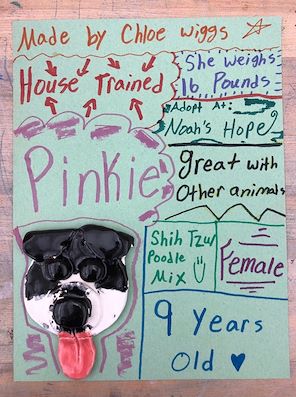 Made by Chloe wiggs
House Trained
She weighs
16 Pounds
Adopt At:
Noah's Hope
Pinkie
great with
Other animals
Shih Tzu/
Poodle
Mix
Female
9 Years
Old